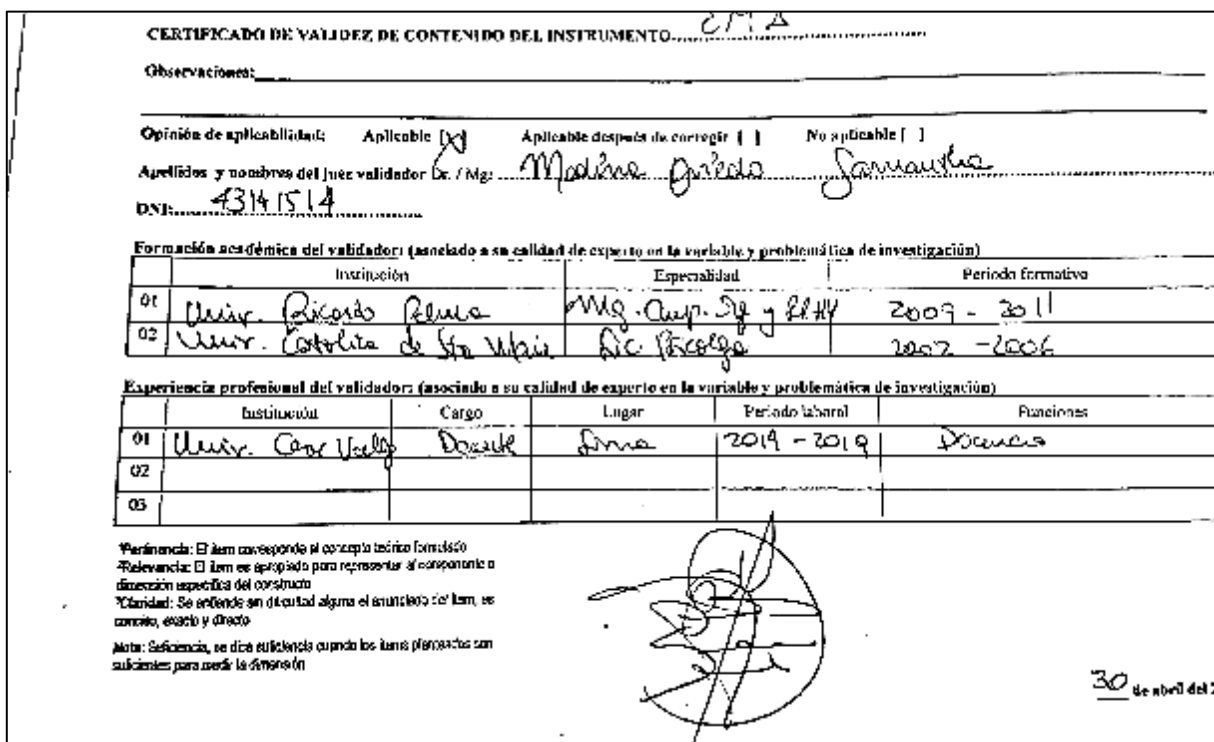 CERTIFICADO DE VALIDEZ DE CONTENIDO DEL INSTRUMENTO........EMA........
Observaciones:
Opinión de aplicabilidad: Aplicable [X] Aplicable después de corregir [ ] No aplicable [ ]
Apellidos y nombres del juez validador Dr. / Mg: Medina Oviedo Samantha
DNI:........43141514........
Formación académica del validador: (asociado a su calidad de experto en la variable y problemática de investigación)
Institución Especialidad Periodo formativo
01 Univ. Ricardo Palma Mg. y 2009 - 2011
02 Univ. Católica de Sta María Lic. Psicología 2002 - 2006
Experiencia profesional del validador: (asociado a su calidad de experto en la variable y problemática de investigación)
Institución Cargo Lugar Periodo laboral Funciones
01 Univ. Cesar Vallejo Docente Lima 2014 - 2019 Docencia
02
03
¹Pertinencia: El ítem corresponde al concepto teórico formulado
²Relevancia: El ítem es apropiado para representar al componente o
dimensión específica del constructo
³Claridad: Se entiende sin dificultad alguna el enunciado del ítem, es
conciso, exacto y directo
Nota: Suficiencia, se dice suficiencia cuando los ítems planteados son
suficientes para medir la dimensión
30 de abril del 2